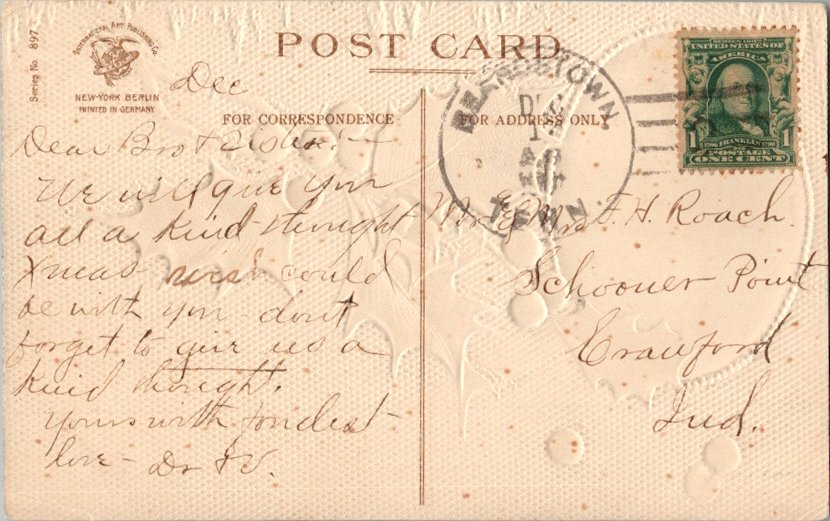 POST CARD
Series No. 897
INTERNATIONAL ART PUBLISHING Co.
NEW-YORK BERLIN
PRINTED IN GERMANY.
FOR CORRESPONDENCE
FOR ADDRESS ONLY
Dec
Dear Bro & Sister:—
We will give you
all a kind thought
Xmas wish could
be with you - dont
forget to give us a
kind thought.
Yours with fondest
love - Dr & V.
TENN.
UNITED STATES OF
AMERICA
1 FRANKLIN 1
POSTAGE
ONE CENT
Mr & Mrs F. H. Roach
Schooner Point
Crawford
Ind.